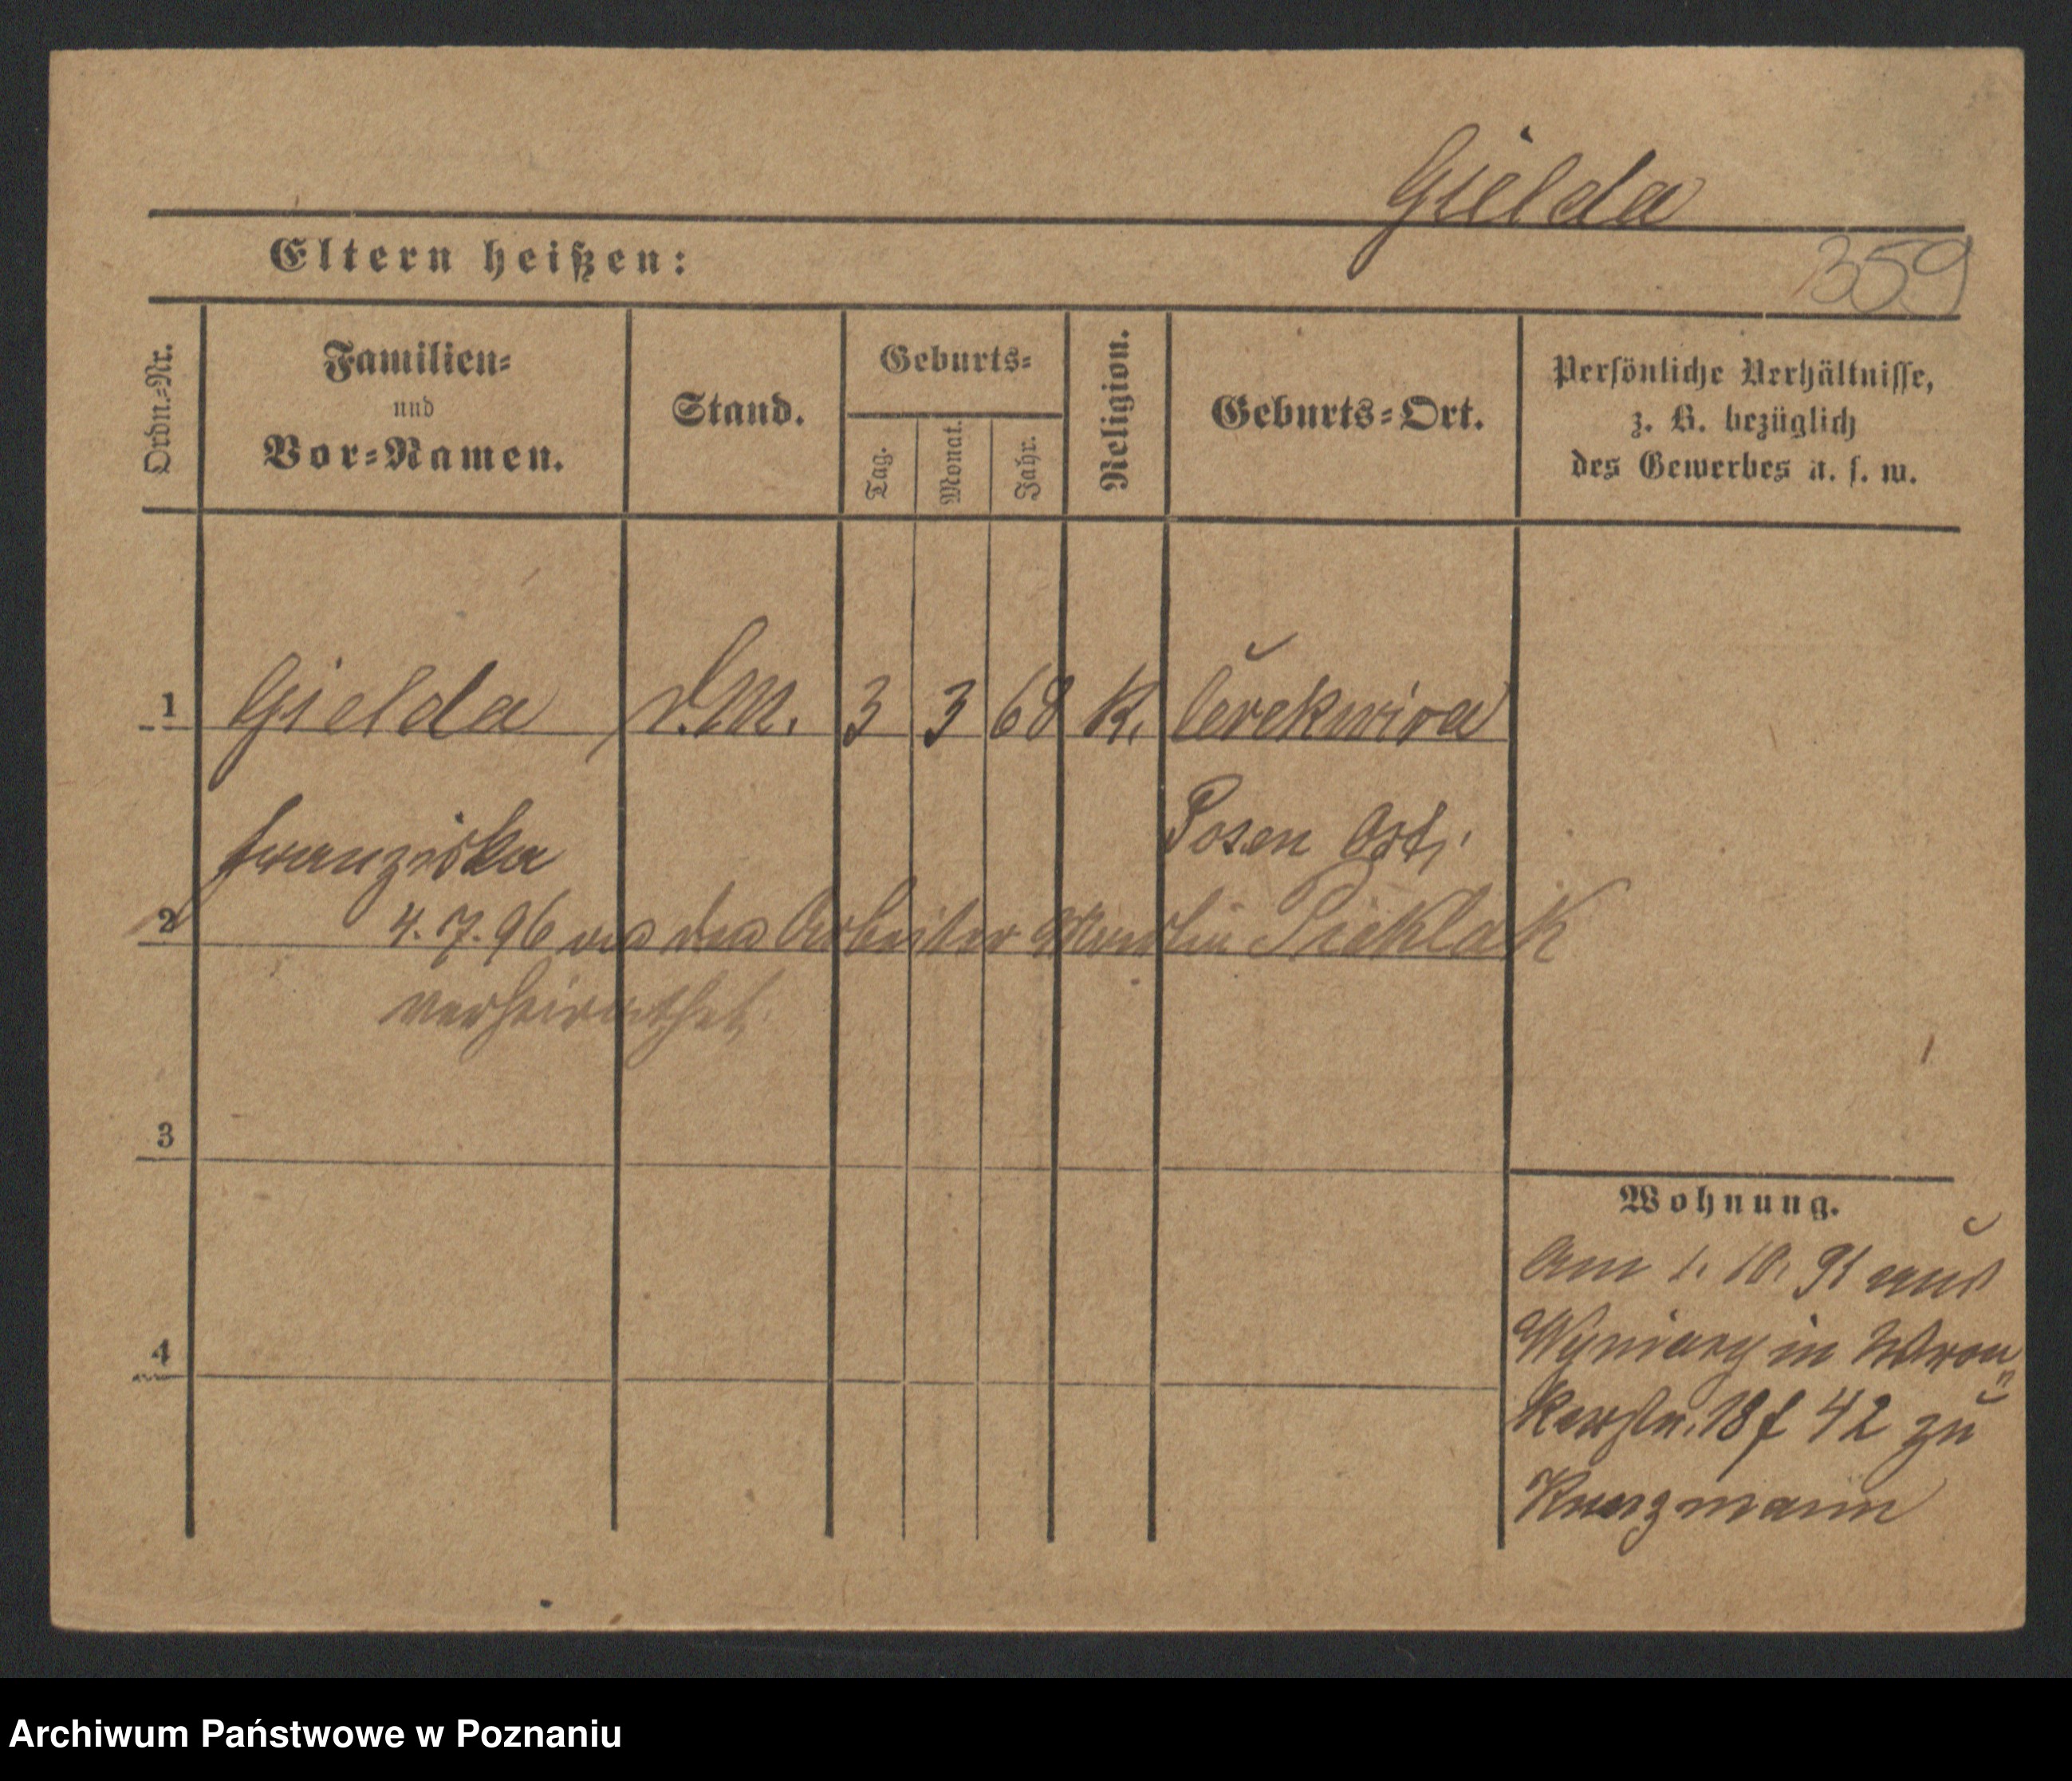 Gielda
359
Eltern heißen:
Ordn.-Nr.
Familien-
und
Vor-Namen.
Stand.
Geburts-
Tag.
Monat.
Jahr.
Religion.
Geburts-Ort.
Persönliche Verhältnisse,
z. B. bezüglich
des Gewerbes u. s. w.
1 Gielda D.M. 3 3 68 K. Cerekwica
Franziska Posen Ost,
2 4. 7. 96 den Arbeiter Martin Pieklak
verheirathet.
3
4
Wohnung.
Am 1. 10. 91 aus
Wyniary in Wron-
kerstr. 18 f 42 zu
Kunzmann
Archiwum Państwowe w Poznaniu